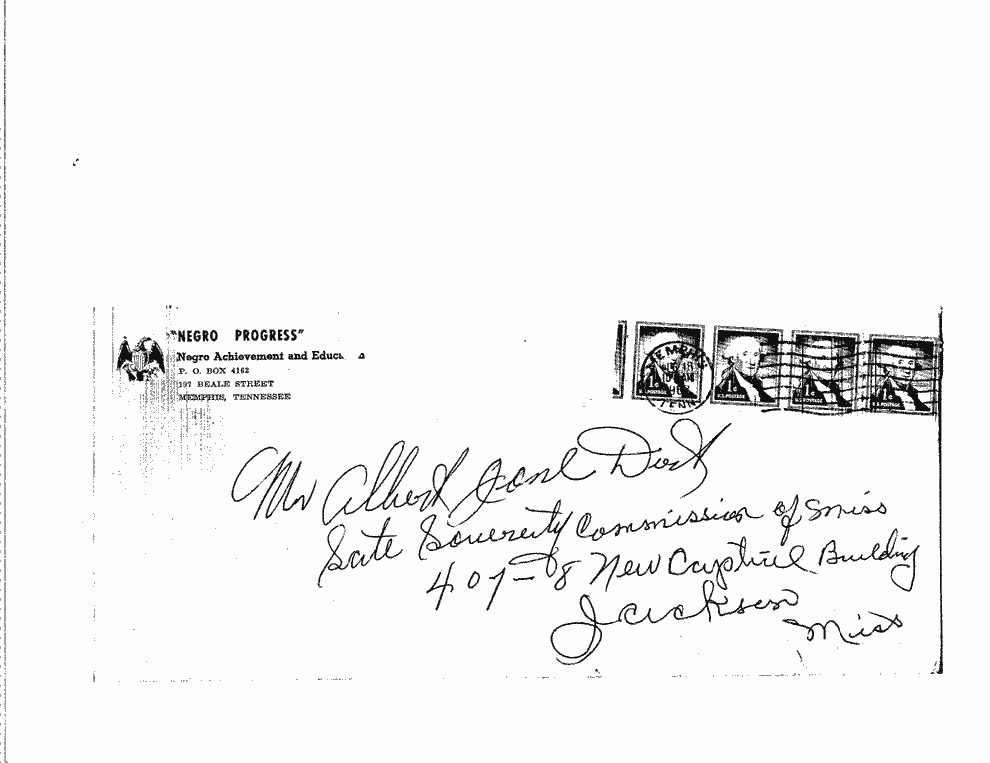 "NEGRO PROGRESS"
Negro Achievement and Educa
P. O. BOX 4162
197 BEALE STREET
MEMPHIS, TENNESSEE
MEMPHIS
TENN
1¢ 1¢ 1¢ 1¢
U.S. POSTAGE
Mr Albert Jone Dirct
Sate Souereity Commission of Miss
407-8 New Captiul Building
Jackson
Miss